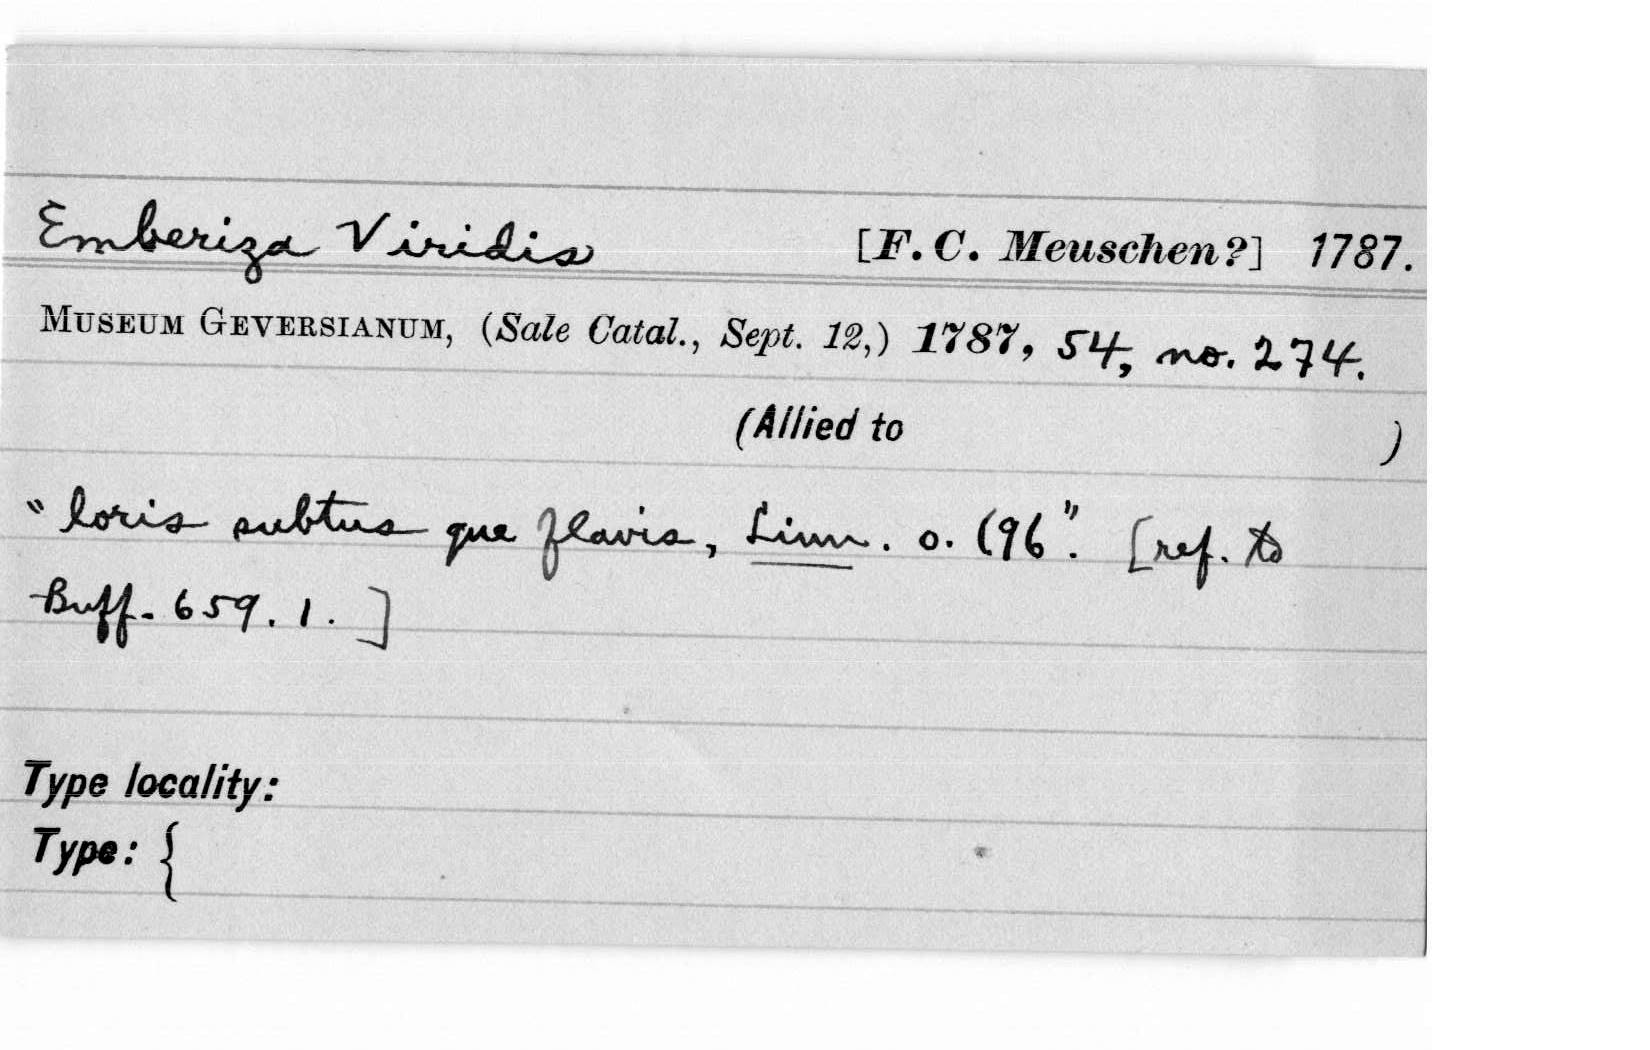 Emberiza Viridis [F. C. Meuschen?] 1787.
MUSEUM GEVERSIANUM, (Sale Catal., Sept. 12,) 1787, 54, no. 274.
(Allied to )
"loris subtus que flavis, Linn. o. (96". [ref. to
Buff. 659. 1. ]
Type locality:
Type: {